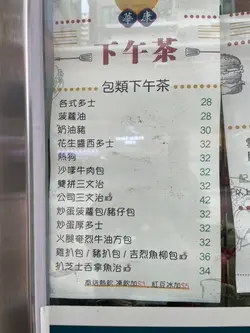 華康
下午茶
包類下午茶
各式多士 28
菠蘿油 28
奶油豬 30
花生醬西多士 32
熱狗 32
沙嗲牛肉包 32
雙拼三文治 32
公司三文治 42
炒蛋菠蘿包/豬仔包 32
炒蛋厚多士 32
火腿奄烈牛油方包 32
雞扒包 / 豬扒包 / 吉烈魚柳包 36
扒芝士吞拿魚治 34
奉送熱飲 凍飲加$3 紅豆冰加$5
配